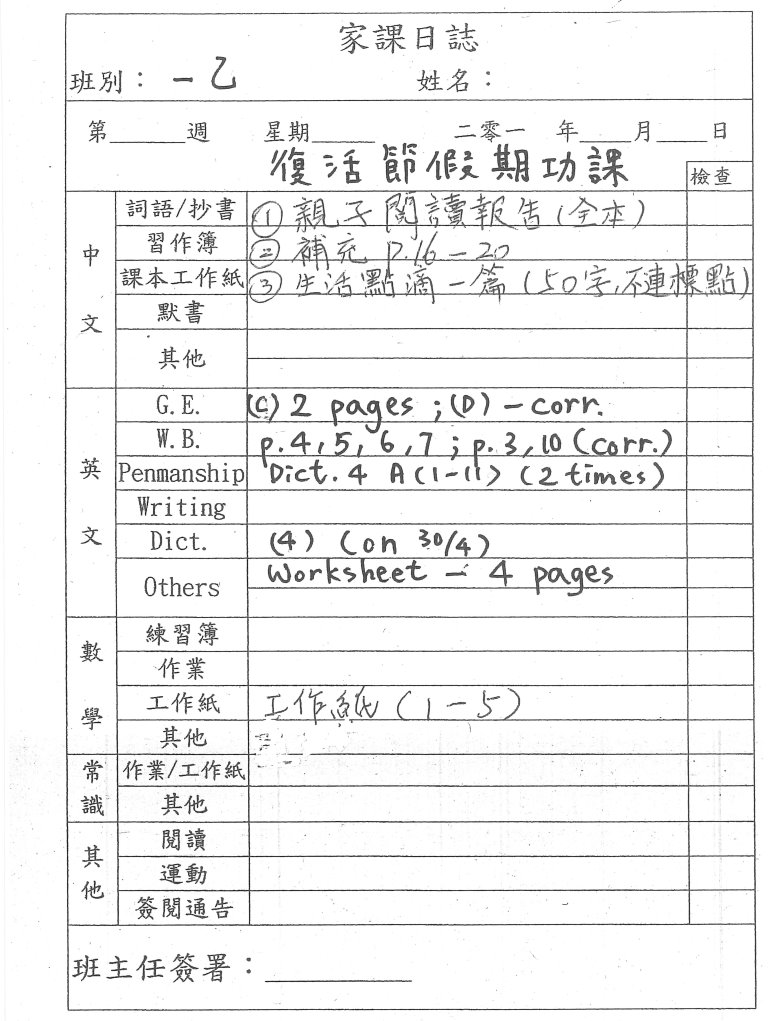 家課日誌
班別：一乙 姓名：
第______週 星期_____ 二零一 年____月____日
復活節假期功課
檢查
中文
詞語/抄書 ①親子閱讀報告(全本)
習作簿 ②補充 p.16-20
課本工作紙 ③生活點滴一篇(50字,不連標點)
默書
其他
英文
G.E. (C) 2 pages ; (D) - corr.
W.B. p.4, 5, 6, 7 ; p.3, 10 (corr.)
Penmanship Dict. 4 A(1-11) (2 times)
Writing
Dict. (4) (on 30/4)
Others Worksheet - 4 pages
數學
練習簿
作業
工作紙 工作紙(1-5)
其他
常識
作業/工作紙
其他
其他
閱讀
運動
簽閱通告
班主任簽署：__________